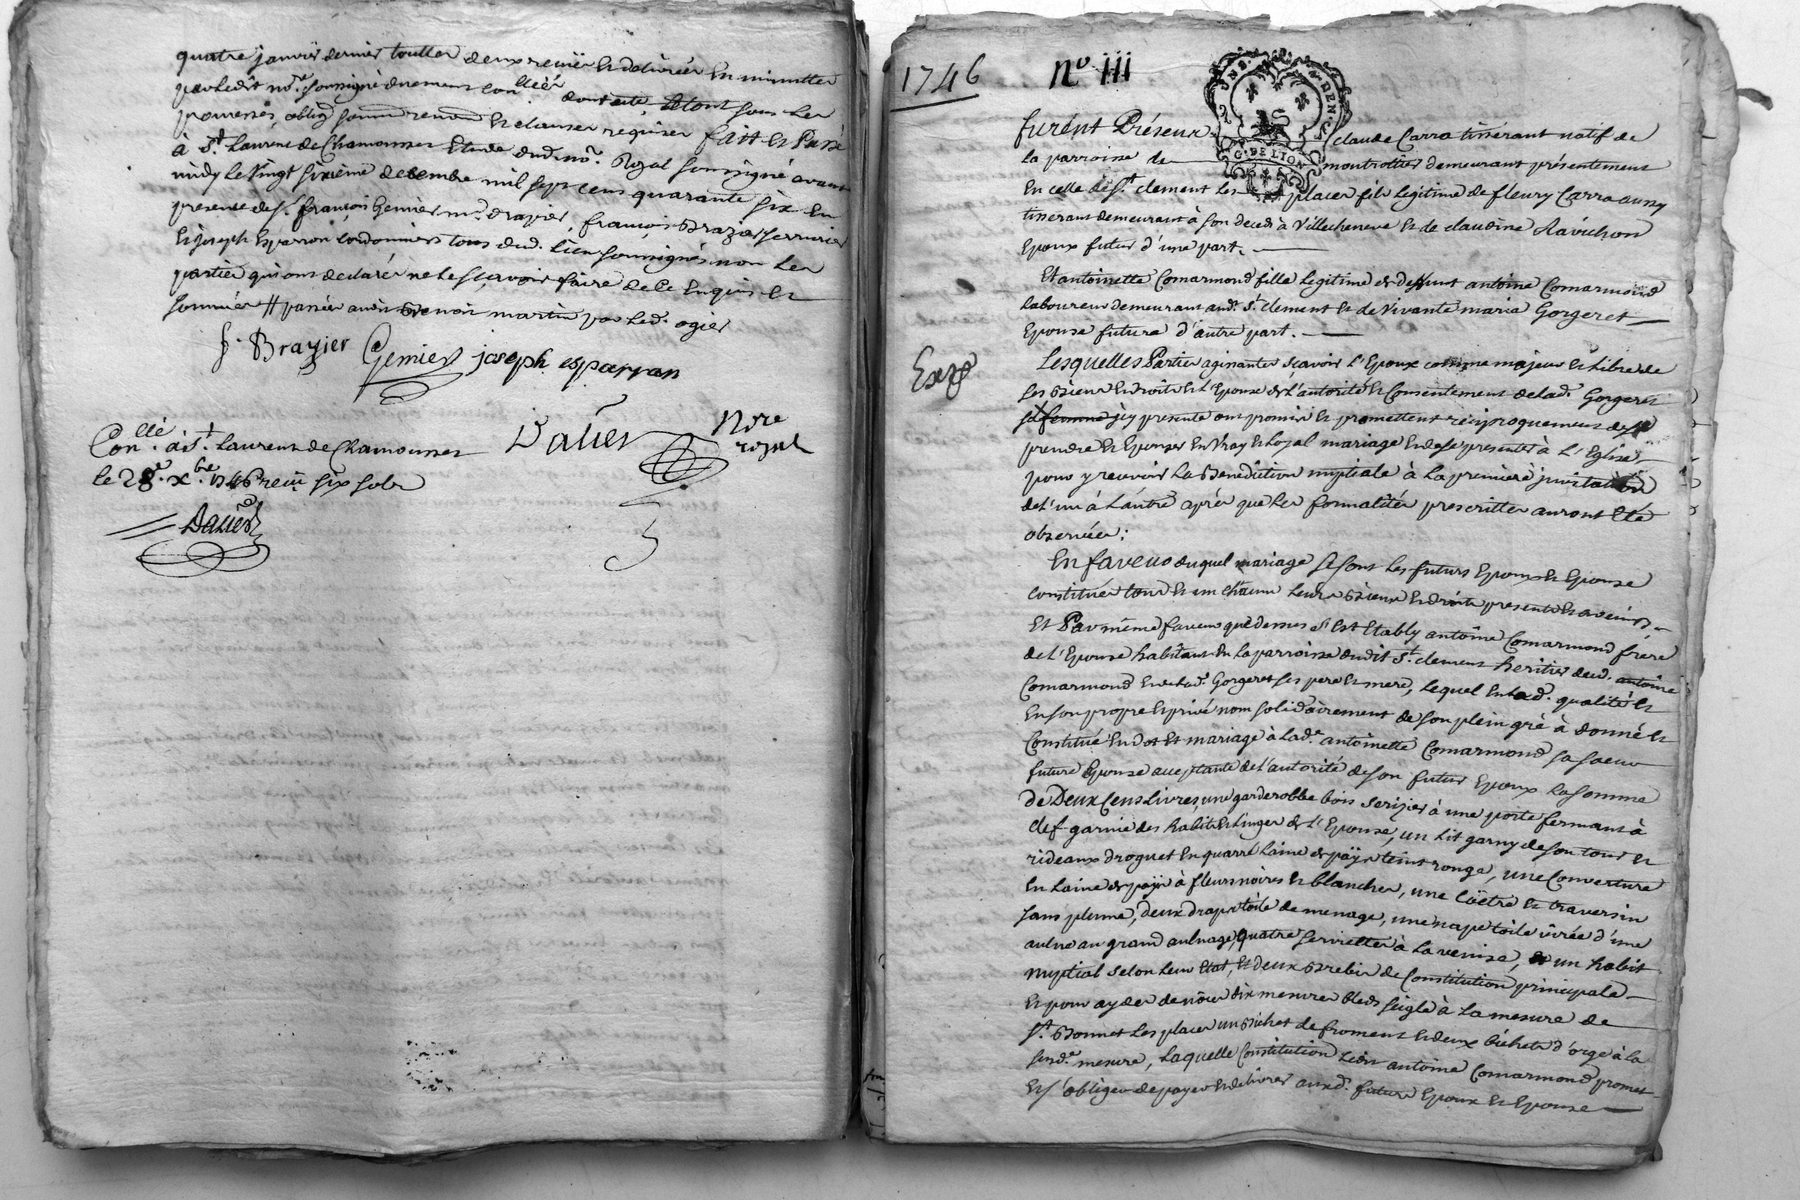 quatre janvier dernier touttes deux reçües et delivrées en minuttes
par ledit no.re soussigné duement con.llées dont acte, et tout sous les
promesses, oblig. soum. renon. et clauses requises fait et Passé
à S.t Laurent de Chamousset Etude dud. no.re Royal soussigné avant
midy le vingt sixième decembre mil sept cens quarante six en
presence de S.r françois Genier m.d drapier, françois Brazier serrurier
et joseph Esparron cordonnier tous dud. lieu soussignés non les
parties qui ont declaré ne le sçavoir faire de ce enquis et
sommées # passées audit Benoit martin par led. ogier
f. Brazier Genier joseph esparran
Dalier No.re royal
Con.llé à S.t Laurent de Chamousset
le 28.e x.bre 1746 reçu six sols
Dalier
1746 n.o 111
GEN. DE LION
furent Présens Claude Carra tisserant natif de
la parroisse de montrottier demeurant présentement
en celle de S.t clement les places fils legitime de fleury Carra aussy
tisserant demeurant à son decedz à Villecheneve et de claudine Ravichon
Epoux futur d'une part.
Et antoinette Comarmond fille legitime de deffunt antoine Comarmond
laboureur demeurant aud. S.t clement et de vivante maria Gorgeret
Epouse future d'autre part.
Exp.e
Lesquelles Parties agissantes sçavoir l'Epoux comme majeur et libre de
ses biens et droits et l'Epouse de l'autorité et consentement de lad. Gorgeret
sa femme icy presente ont promis et promettent réciproquement de se
prendre et Epouser en vray et loyal mariage et de se presenter à l'Eglise
pour y recevoir la Benediction nuptiale à la première invitation
de l'un à l'autre après que les formalités prescrittes auront eté
observées;
En faveur duquel mariage se sont les futurs Epoux et Epouse
constitués tous et un chacun leurs biens et droits presents et avenirs,
Et Par même faveur que dessus s'est Etably antoine Comarmond frere
de l'Epouse habitant en la parroisse dudit S.t clement heritier desd. antoine
Comarmond et de lad. Gorgeret ses pere et mere, lequel en lad. qualité et
en son propre et privé nom solidairement de son plein gré à donné et
Constitué en dot et mariage à lad.e antoinette Comarmond sa soeur
future Epouse acceptante de l'autorité de son futur Epoux la somme
de Deux Cens livres, une garderobbe bois serizier à une porte fermant à
clef garnie des habits et linges de l'Epouse, un lit garny de son tour et
rideaux droguet en quarré laine de païs teint rouge, une Couverture
en laine de païs à fleurs noires et blanches, une Coëtre et traversin
sans plume, deux draps toile de menage, une nape toile ùvrée d'une
aulne au grand aulnage, quatre serviettes à la venise, et un habit
nuptial selon leur Etat, et deux Brebis de Constitution principale
et pour ayder de nôces dix mesures bleds seigle à la mesure de
S.t Bonnet les places un Bichet de froment et deux bichets d'orge à la
susd.e mesure, laquelle Constitution ledit antoine Comarmond promet
et s'oblige de payer et delivrer auxd. futurs Epoux et Epouse